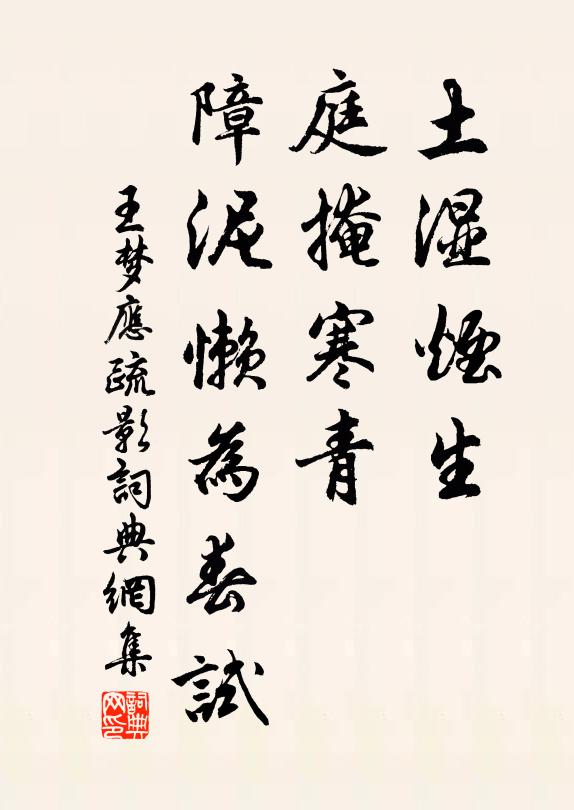 土湿煙生
庭掩寒青
障泥懒為春試
王梦應疏影詞典網集
詞典网印